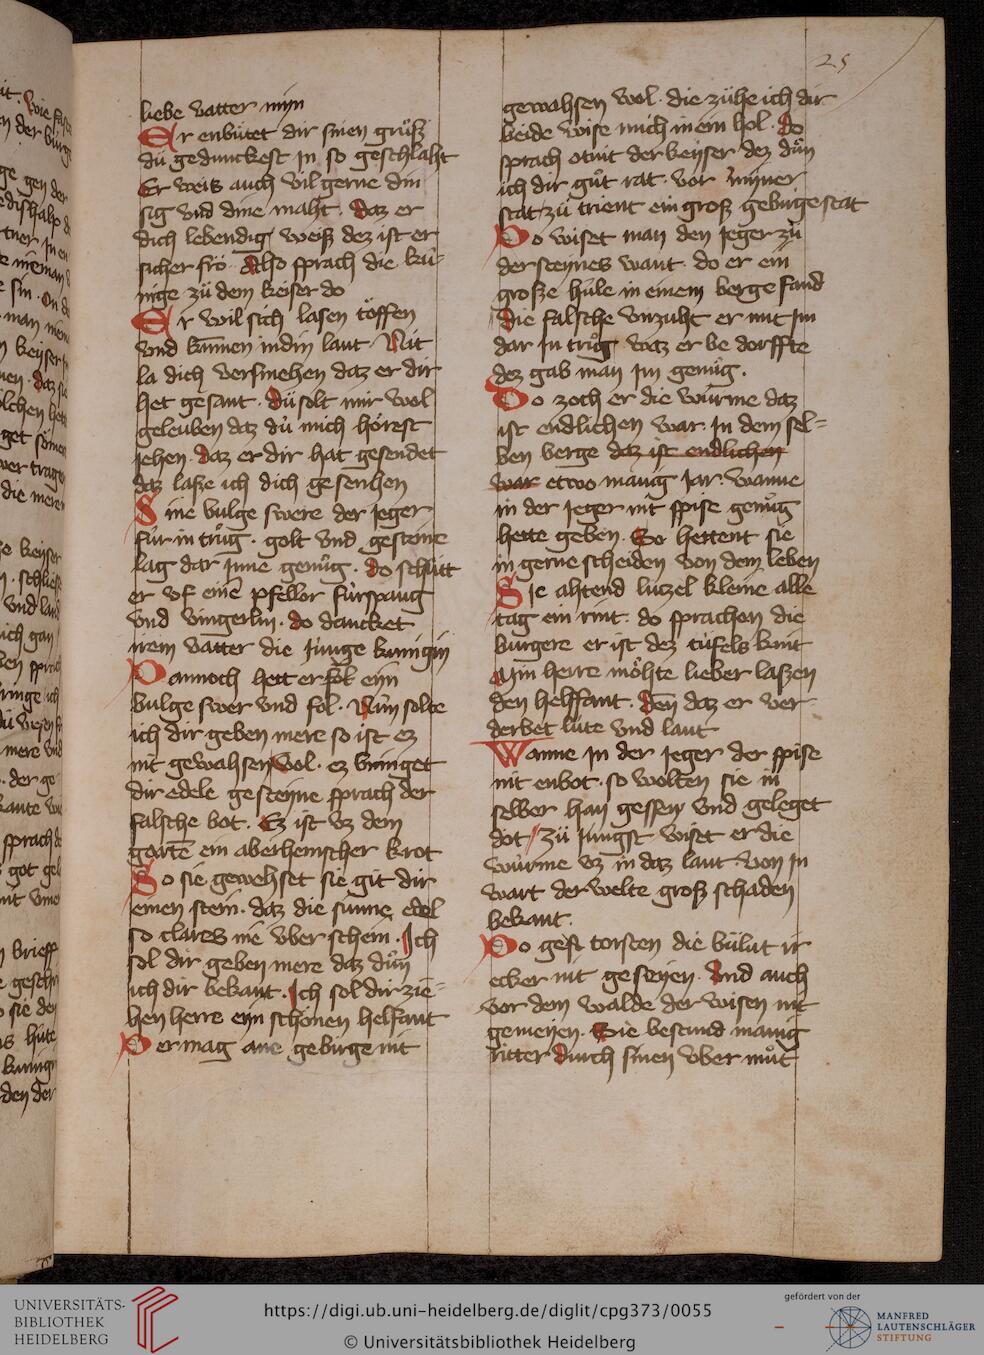 25
liebe vatter mijn
Er enbu̍tet dir sinen gru̍sz
du̍ gedunckest in so geschlaht
Er weis auch vil gerne din
sig vnd dine maht. daz er
dich lebendig weiß dez ist er
sicher fro. Also sprach die ku̍-
nige zu̍ dem keiser do
Er wil sich lasen to̍ffen
vnd kum̅en in din lant Nit
la dich versmehen daz er dir
het gesant. du̍ solt mir wol
geleuben daz du̍ mich ho̍rest
jehen. daz er dir hat gesendet
daz lasze ich dich gesenhen
Sine bulge swere der Jeger
fu̍r in tru̍g. golt vnd gesteine
lag dar inne genu̍g. do schu̍tt
er vf eine̅ pfellor fu̍rspang
vnd vingerlin. do dancket
irem vatter die Ju̍nge kunigin
Dannoch hett er fo̍l ein
bulge swer vnd fol. Nu̍n solte
ich dir geben mere so ist ez
nit gewahsen wol. ez bringet
dir edele gesteyne sprach der
falsche bot. Ez ist vz dem
garte̅ ein aberhemscher krot
So sie gewehset sie git dir
einen stein. daz die sunne edel
so clares nie vber schein. Ich
sol dir geben mere daz du̍n
ich dir bekant. Ich sol dir zie-
hen herre eyn schonen helfant
Der mag ane gebirge nit
gewahsen wol. die zu̍he ich dir
beide wise mich in ein hol. do
sprach otnit der keyser dez du̍n
ich dir gu̍t rat. vor myner
stat zu̍ trient ein grosz gebirge stat
Do wiset man den Jeger zu̍
der steynes want. do er ein
grosze hu̍le in einem berge fand
die falsche vnzuht er mit Im
dar In tru̍g waz er bedorffte
dez gab man Im genu̍g.
Do zoch er die wu̍rme daz
ist endlichen war. In dem sel-
ben berge daz ist endlichen
war etwo manig Jar. wanne
in der Jeger nit spise genu̍g
hette geben. So hettent sie
in gerne scheiden von dem leben
Sie ahtend lu̍tzel kleine alle
tag ein rint. do sprachen die
burgere er ist dez tu̍fels kint
Min herre mo̍hte lieber laszen
den helffant. den̅ daz er ver-
derbet lu̍te vnd lant
Wanne In der Jeger der spise
nit enbot. so wolten sie in
selber han gessen vnd geleget
dot / zu̍ Jungst wiset er die
wu̍rme vz in daz lant von In
wart der welte grosz schaden
bekant.
Do gest torsten die bu̍lut ir
ecker nit geseyen. Vnd auch
vor dem walde der wisen nit
gemeyen. Sie bestund manig
ritter durch sinen vber mu̍t
UNIVERSITÄTS-
BIBLIOTHEK
HEIDELBERG
https://digi.ub.uni-heidelberg.de/diglit/cpg373/0055
© Universitätsbibliothek Heidelberg
gefördert von der
MANFRED
LAUTENSCHLÄGER
STIFTUNG